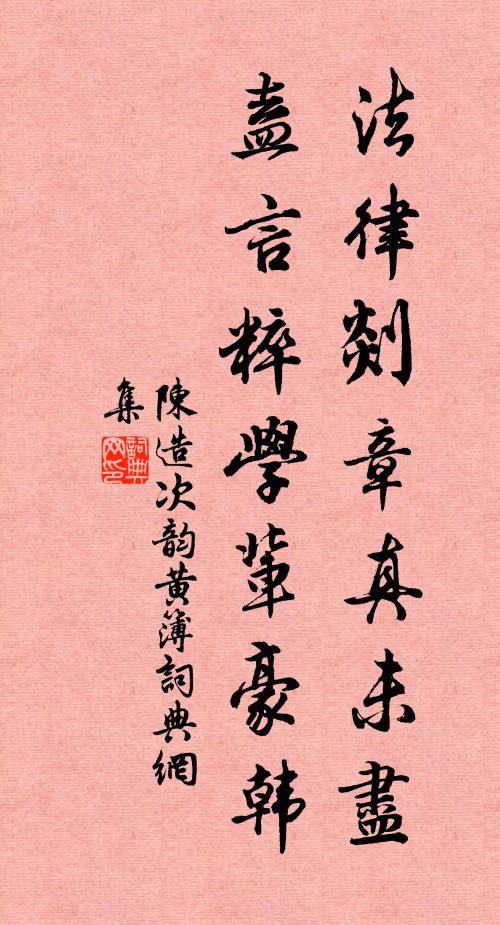 法律剡章真未盡
盍言粹學軰豪韩
陳造次韵黃簿詞典網
集
詞典
网印